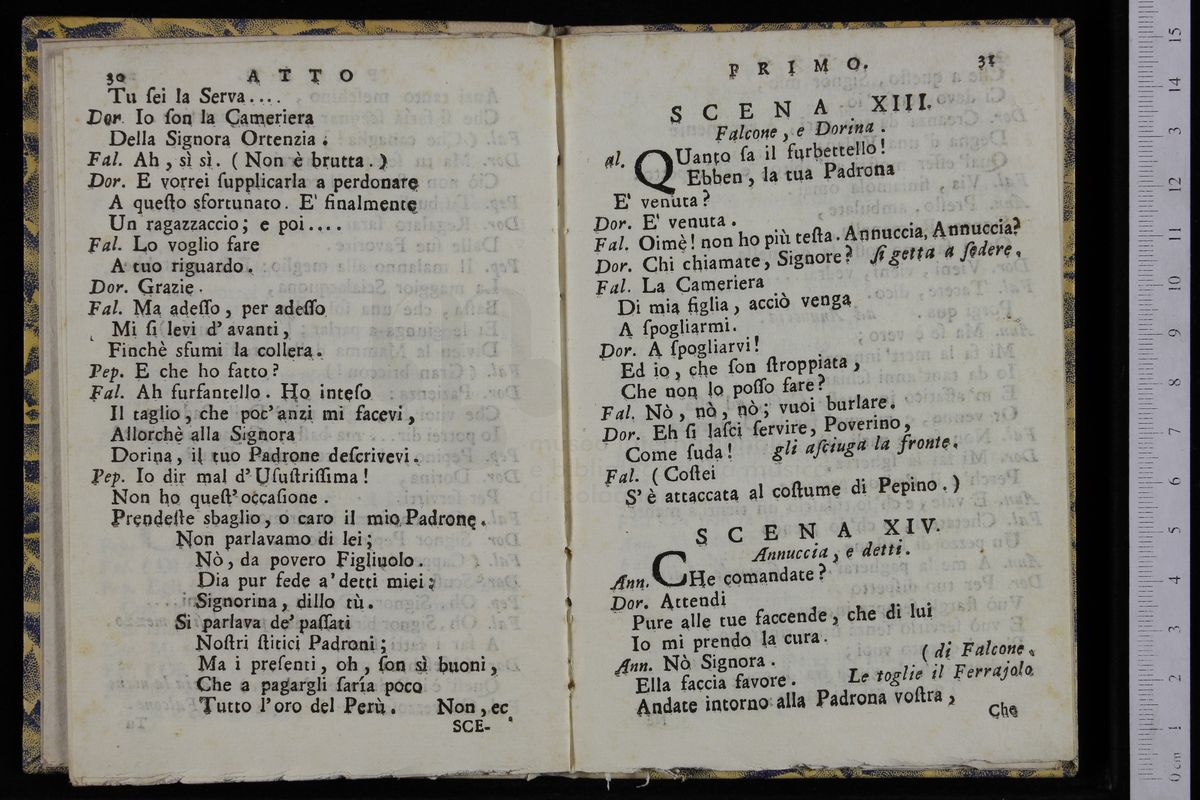 30 ATTO
Tu ſei la Serva....
Dor. Io ſon la Cameriera
Della Signora Ortenzia.
Fal. Ah, sì sì. (Non è brutta.)
Dor. E vorrei ſupplicarla a perdonare
A queſto sfortunato. E' finalmente
Un ragazzaccio; e poi....
Fal. Lo voglio fare
A tuo riguardo.
Dor. Grazie.
Fal. Ma adeſſo, per adeſſo
Mi ſi levi d'avanti,
Finchè sfumi la collera.
Pep. E che ho fatto?
Fal. Ah furfantello. Ho inteſo
Il taglio, che poc'anzi mi facevi,
Allorchè alla Signora
Dorina, il tuo Padrone deſcrivevi.
Pep. Io dir mal d'Uſuſtriſſima!
Non ho queſt'occaſione.
Prendeſte sbaglio, o caro il mio Padrone.
Non parlavamo di lei;
Nò, da povero Figliuolo.
Dia pur fede a'detti miei;
Signorina, dillo tù.
Si parlava de'paſſati
Noſtri ſtitici Padroni;
Ma i preſenti, oh, ſon sì buoni,
Che a pagargli ſaria poco
Tutto l'oro del Perù. Non, ec
SCE-
PRIMO. 31
SCENA XIII.
Falcone, e Dorina.
al. QUanto ſa il furbettello!
Ebben, la tua Padrona
E' venuta?
Dor. E' venuta.
Fal. Oimè! non ho più teſta. Annuccia, Annuccia?
Dor. Chi chiamate, Signore? ſi getta a ſedere.
Fal. La Cameriera
Di mia figlia, acciò venga
A ſpogliarmi.
Dor. A ſpogliarvi!
Ed io, che ſon ſtroppiata,
Che non lo poſſo fare?
Fal. Nò, nò, nò; vuoi burlare.
Dor. Eh ſi laſci ſervire, Poverino,
Come ſuda! gli aſciuga la fronte.
Fal. (Coſtei
S'è attaccata al coſtume di Pepino.)
SCENA XIV.
Annuccia, e detti.
Ann. CHe comandate?
Dor. Attendi
Pure alle tue faccende, che di lui
Io mi prendo la cura.
Ann. Nò Signora. (di Falcone.
Ella faccia favore. Le toglie il Ferrajolo
Andate intorno alla Padrona voſtra,
Che